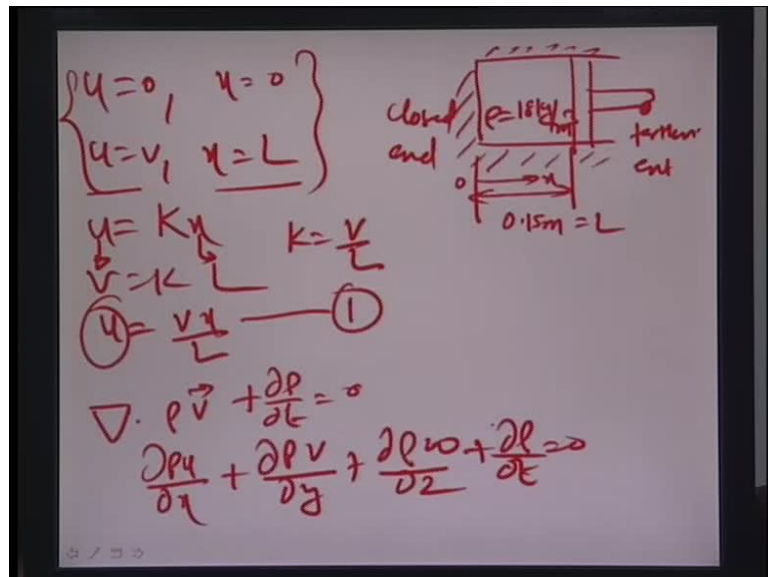 u=0, x=0
u=v, x=L
u=Kx K=V/L
v=K L
u= vx/L ——— 1
∇. ρV⃗ + ∂ρ/∂t = 0
∂ρu/∂x + ∂ρv/∂y + ∂ρw/∂z + ∂ρ/∂t = 0
closed
end
ρ=18kg/m³
end
0 x
0.15m = L